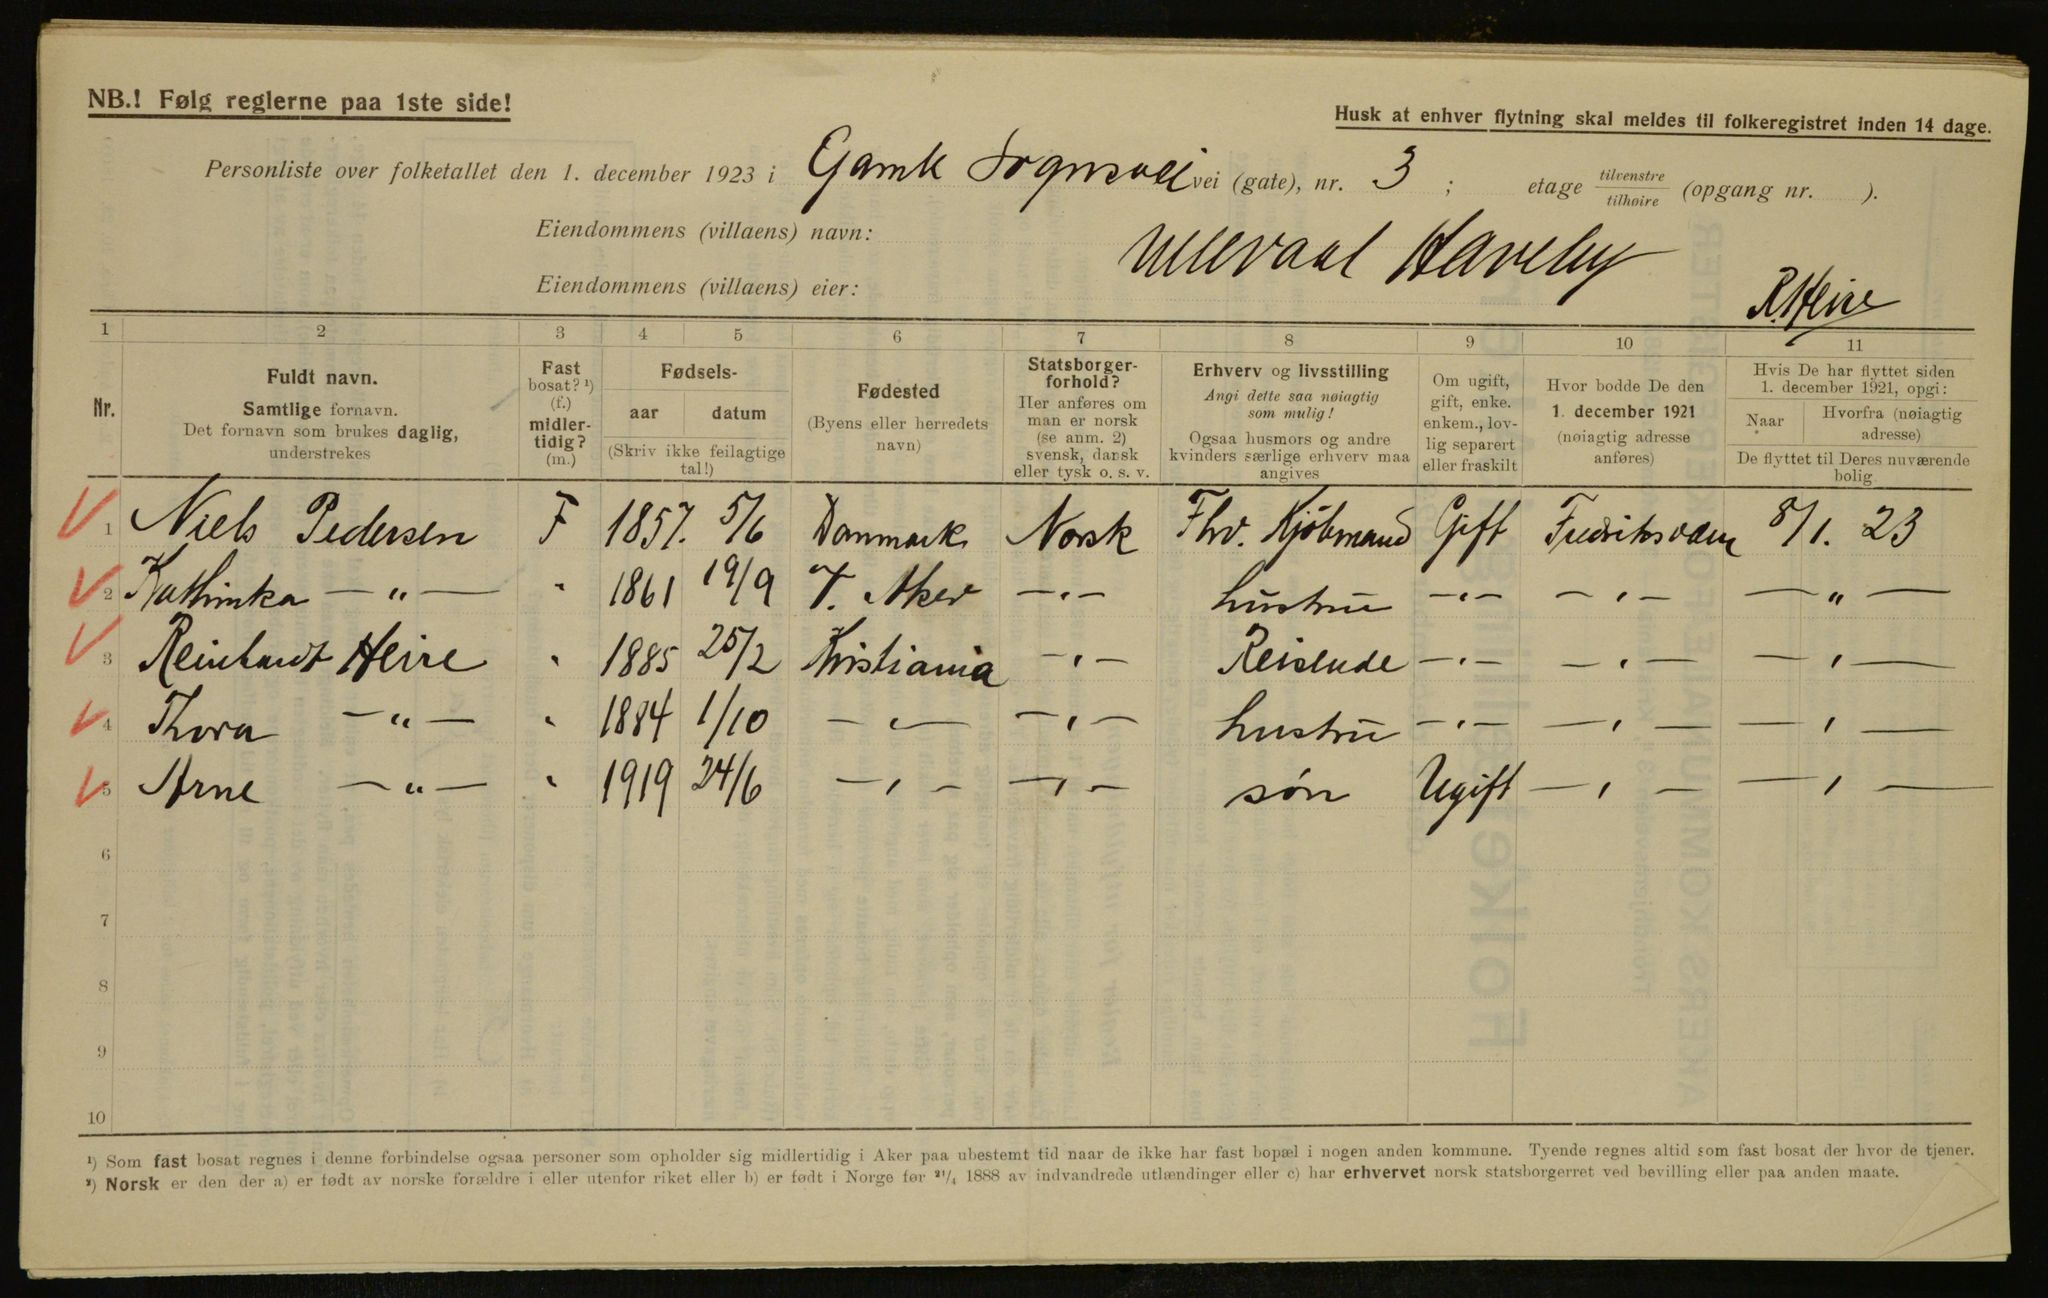 NB.! Følg reglerne paa 1ste side!
Husk at enhver flytning skal meldes til folkeregistret inden 14 dage.
Personliste over folketallet den 1. december 1923 i Gamle Sognsvei vei (gate), nr. 3 ; etage tilvenstre / tilhøire (opgang nr. ).
Eiendommens (villaens) navn: Ullevaal Haveby
Eiendommens (villaens) eier: R. Heire
1 2 3 4 5 6 7 8 9 10 11
Nr.
Fuldt navn.
Samtlige fornavn.
Det fornavn som brukes daglig,
understrekes
Fast
bosat? ¹)
(f.)
midler-
tidig?
(m.)
Fødsels-
aar datum
(Skriv ikke feilagtige
tal!)
Fødested
(Byens eller herredets
navn)
Statsborger-
forhold?
Her anføres om
man er norsk
(se anm. 2)
svensk, dansk
eller tysk o. s. v.
Erhverv og livsstilling
Angi dette saa nøiagtig
som mulig!
Ogsaa husmors og andre
kvinders særlige erhverv maa
angives
Om ugift,
gift, enke.
enkem., lov-
lig separert
eller fraskilt
Hvor bodde De den
1. december 1921
(nøiagtig adresse
anføres)
Hvis De har flyttet siden
1. december 1921, opgi:
Naar
Hvorfra (nøiagtig
adresse)
De flyttet til Deres nuværende
bolig
1 Niels Pedersen F 1857. 5/6 Danmark Norsk Fhv. Kjöbmand Gift 8/1. 23
2 Kathinka —„— „ 1861 19/9 V. Aker —„— hustru —„— —„— —„—
3 Reinhardt Heire „ 1885 25/2 Kristiania —„— Reisende —„— —„— —„—
4 Thora —„— „ 1884 1/10 —„— —„— hustru —„— —„— —„—
5 Arne —„— „ 1919 24/6 —„— —„— søn Ugift —„— —„—
6
7
8
9
10
¹) Som fast bosat regnes i denne forbindelse ogsaa personer som opholder sig midlertidig i Aker paa ubestemt tid naar de ikke har fast bopæl i nogen anden kommune. Tyende regnes altid som fast bosat der hvor de tjener.
²) Norsk er den der a) er født av norske forældre i eller utenfor riket eller b) er født i Norge før ²¹/₄ 1888 av indvandrede utlændinger eller c) har erhvervet norsk statsborgerret ved bevilling eller paa anden maate.